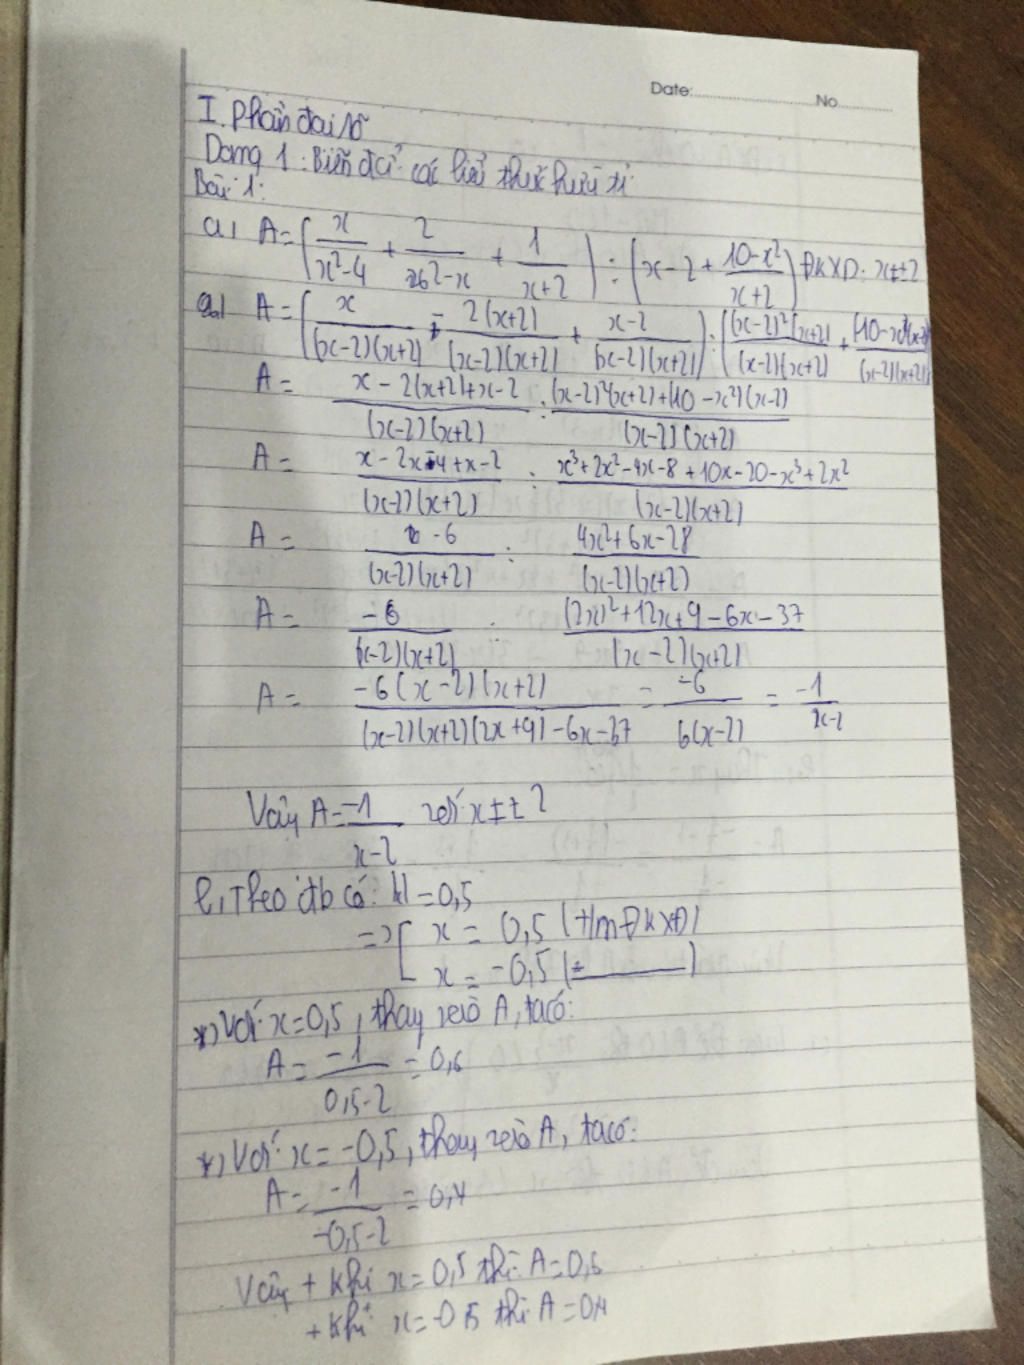 Date: No
I. Phần đại số
Dạng 1: Biến đổi các biểu thức hữu tỉ
Bài 1:
a) A = (x/(x²-4) + 2/(2-x) + 1/(x+2)) : (x-2 + (10-x²)/(x+2)) ĐKXĐ: x≠±2
a) A = (x/((x-2)(x+2)) - 2(x+2)/((x-2)(x+2)) + (x-2)/((x-2)(x+2))) : ((x-2)²(x+2)/((x-2)(x+2)) + (10-x²)(x-2)/((x-2)(x+2))
A = (x-2(x+2)+x-2)/((x-2)(x+2)) : ((x-2)²(x+2)+(10-x²)(x-2))/((x-2)(x+2))
A = (x-2x-4+x-2)/((x-2)(x+2)) : (x³+2x²-4x-8+10x-20-x³+2x²)/((x-2)(x+2))
A = -6/((x-2)(x+2)) : (4x²+6x-28)/((x-2)(x+2))
A = -6/((x-2)(x+2)) : ((2x)²+12x+9-6x-37)/((x-2)(x+2))
A = -6(x-2)(x+2)/((x-2)(x+2)(2x+9)-6x-37) = -6/(6(x-2)) = -1/(x-2)
Vậy A = -1/(x-2) với x≠±2
b, Theo đb có: |x| = 0,5
=> [ x = 0,5 (t/m ĐKXĐ)
x = -0,5 (
*) Với x=0,5, thay vào A, ta có:
A = -1/(0,5-2) = 0,6
*) Với x = -0,5, thay vào A, ta có:
A = -1/(-0,5-2) = 0,4
Vậy + Khi x = 0,5 thì A = 0,6
+ Khi x = -0,5 thì A = 0,4